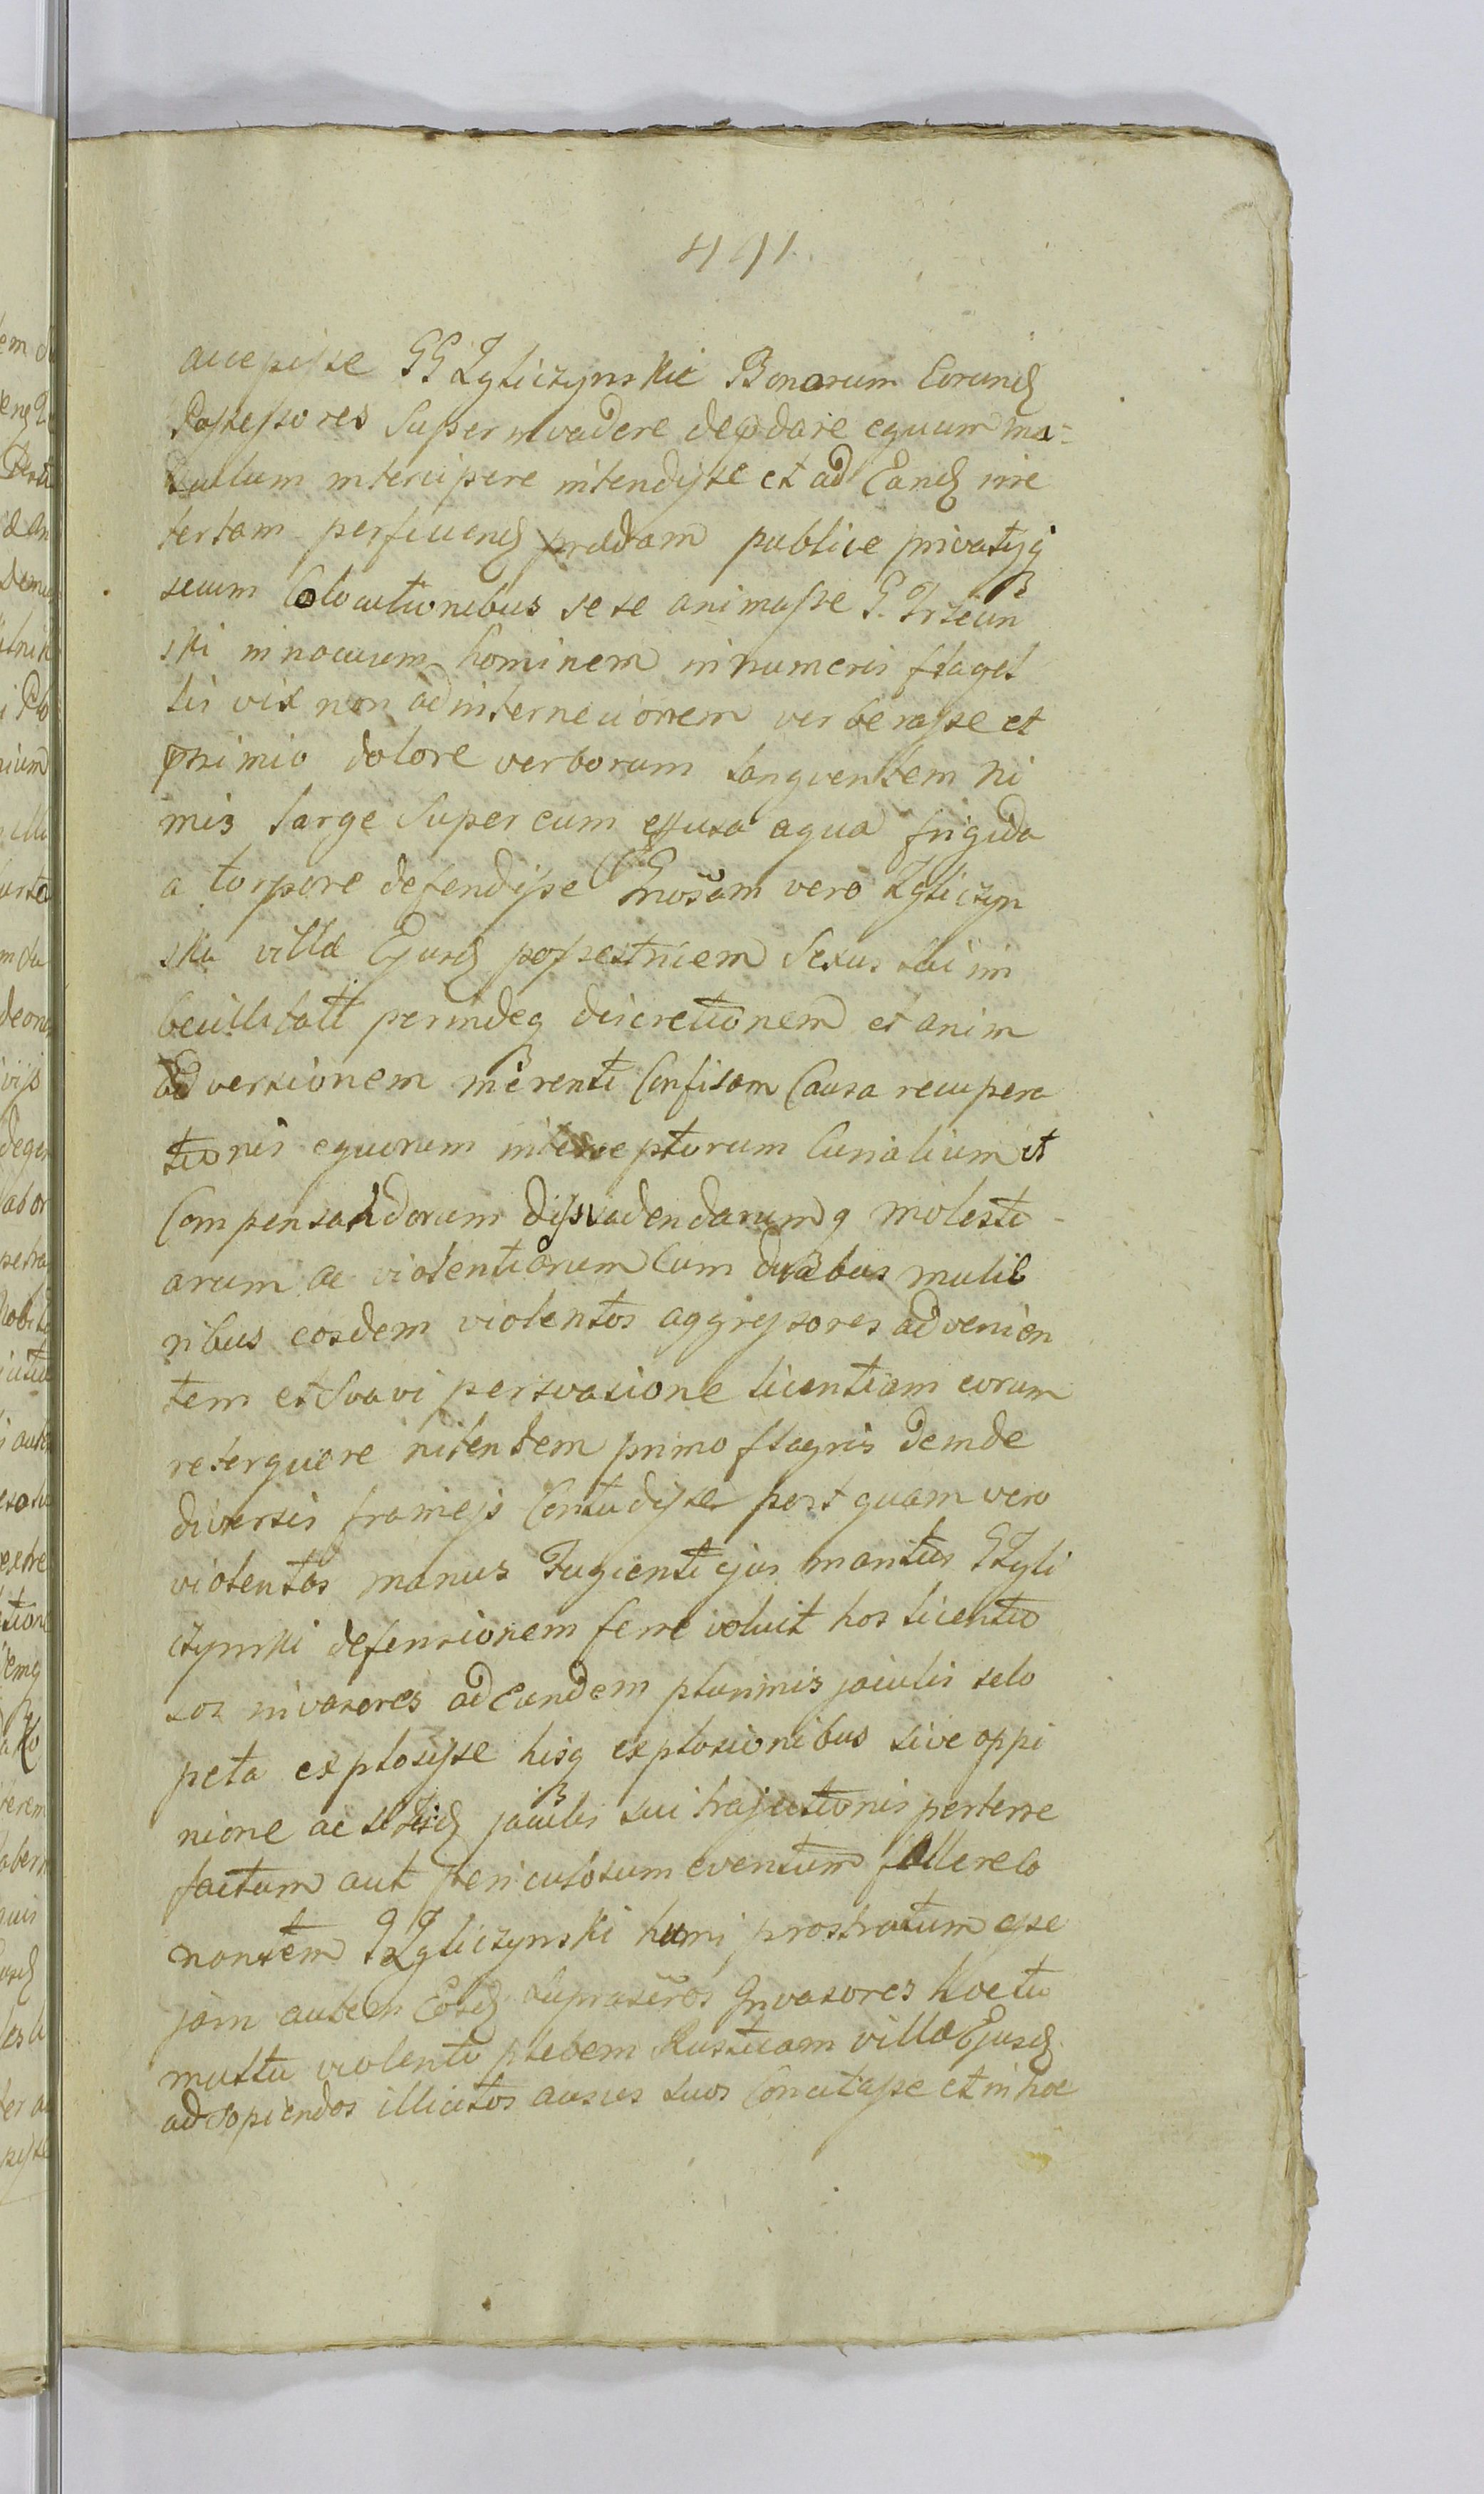 491.
accepisse GG Zgliczynskie Bonorum Eorund
Possessores Super invadere depdare equum ma-
sculum intercipere intendisse et ad Eand irre
tertam perficiend prædam publice privatisq
secum Colocutionibus sese animasse G. Trzcin
ski innocuum hominem innumeris flagel
lis vix non ad internecionem verberasse et
nimio dolore verborum langventem ni
mis large Super eum effusa aqua frigida
a torpore defendisse Gnosam verò Zgliczyn
ska villæ Ejusd possestricem Sexus sui im
becillitati perindeq discretionem et anim
adversionem merenti Confisam Causa recupera
tionis equorum interceptorum Curialium et
Compensandorum dissvadendarumq molesti-
arum ac violentiarum Cum duabus mulie
ribus eosdem violentos aggressores advenien
tem et Svavi persvasione licentiam eorum
reterquere nitentem primo flagris deinde
diversis frameis Contudisse post quam vero
violentas manus Fugienti ejus maritus GZgli
czynski defensionem ferre voluit hos licentio
sos invasores ad Eundem plurimis jaculis selo
peta explosisse hisq explosionibus sive oppi
nione ac jaculis sui trajectionis perterre
factum aut periculosum eventum fallere co
nantem GZgliczynski humi prostratum esse
jam autem Eosd supraseros Invasores hoc tu
multu violenti plebem Rusticam villæ Ejusd
ad sopiendos illicitos ausus suos Concitasse et in hoc